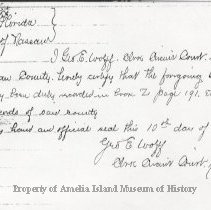 Florida
of Nassau
I Geo E. Wolff Clerk Circuit Court
County, hereby certify that the foregoing
been duly recorded in Book Z page 191,
of said county
hand and official seal this 10th day of
Geo E Wolff
Clerk Circuit Court
Property of Amelia Island Museum of History